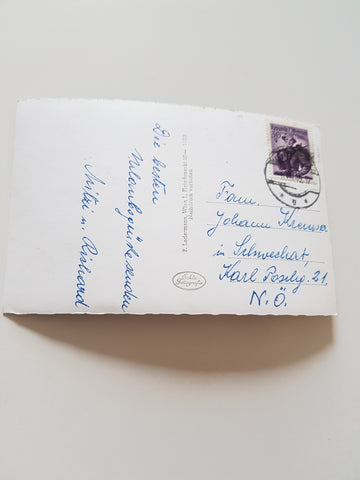 Die besten
Urlaubsgrüße senden
u. Richard
P. Ledermann, Wien I, Fleischmarkt
Nachdruck verboten
Echte
Fam.
Johann
in Schwechat,
Karl Poslg. 21,
N.Ö.